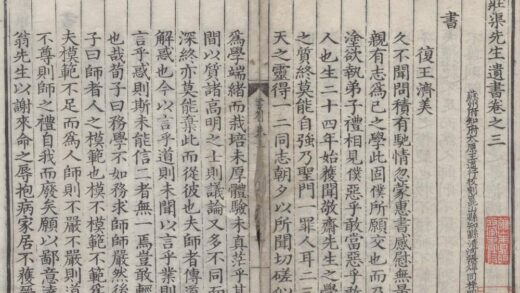 莊渠先生遺書卷之三
蘇州府知府太原王道行校刻崑山縣知縣清漳
書
復王濟美
久不聞問積有馳情忽蒙惠書感慰無
親有志為已之學此固僕所願交也而乃
塗欲執弟子禮相見僕惡乎敢當惡乎敢
人也生二十四年始獲聞敬齋先生之學
之質終莫能自強乃聖門一罪人耳二三
天之靈得一二同志朝夕以所聞切磋似
為學端緒而栽培未厚體驗未真茫乎其
間以質諸高明之士則議論又多不同
深終亦莫能棄此而從彼也夫師者傳道
解惑也今以言乎道則未聞以言乎業則
言乎惑則斯未能信二者無一焉豈敢輕
也哉荀子曰務學不如務求師師嚴然後
子曰師者人之模範也模不模範不
夫模範不足而為人師則不嚴不嚴則道
不尊則師之禮自我而廢矣願以鄙意
翁先生以謝來命之辱抱病家居不獲